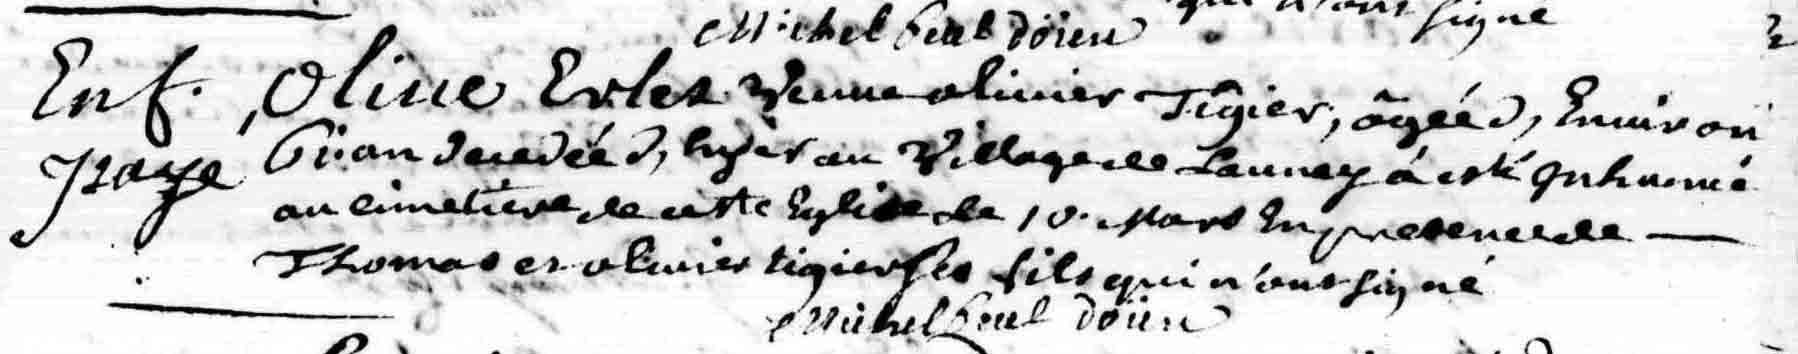 qui n'ont signé
Michel doien
Enf. Olive Erler Veuve olivier Tigier, âgéed, Environ
paye 60: an decedéed, hyer au Village de Launay á esté Inhumé
au cimetiere de cette Eglise le 10. Mars En presence de
Thomas et olivier tigier ses fils qui n'ont signé
Michel doien